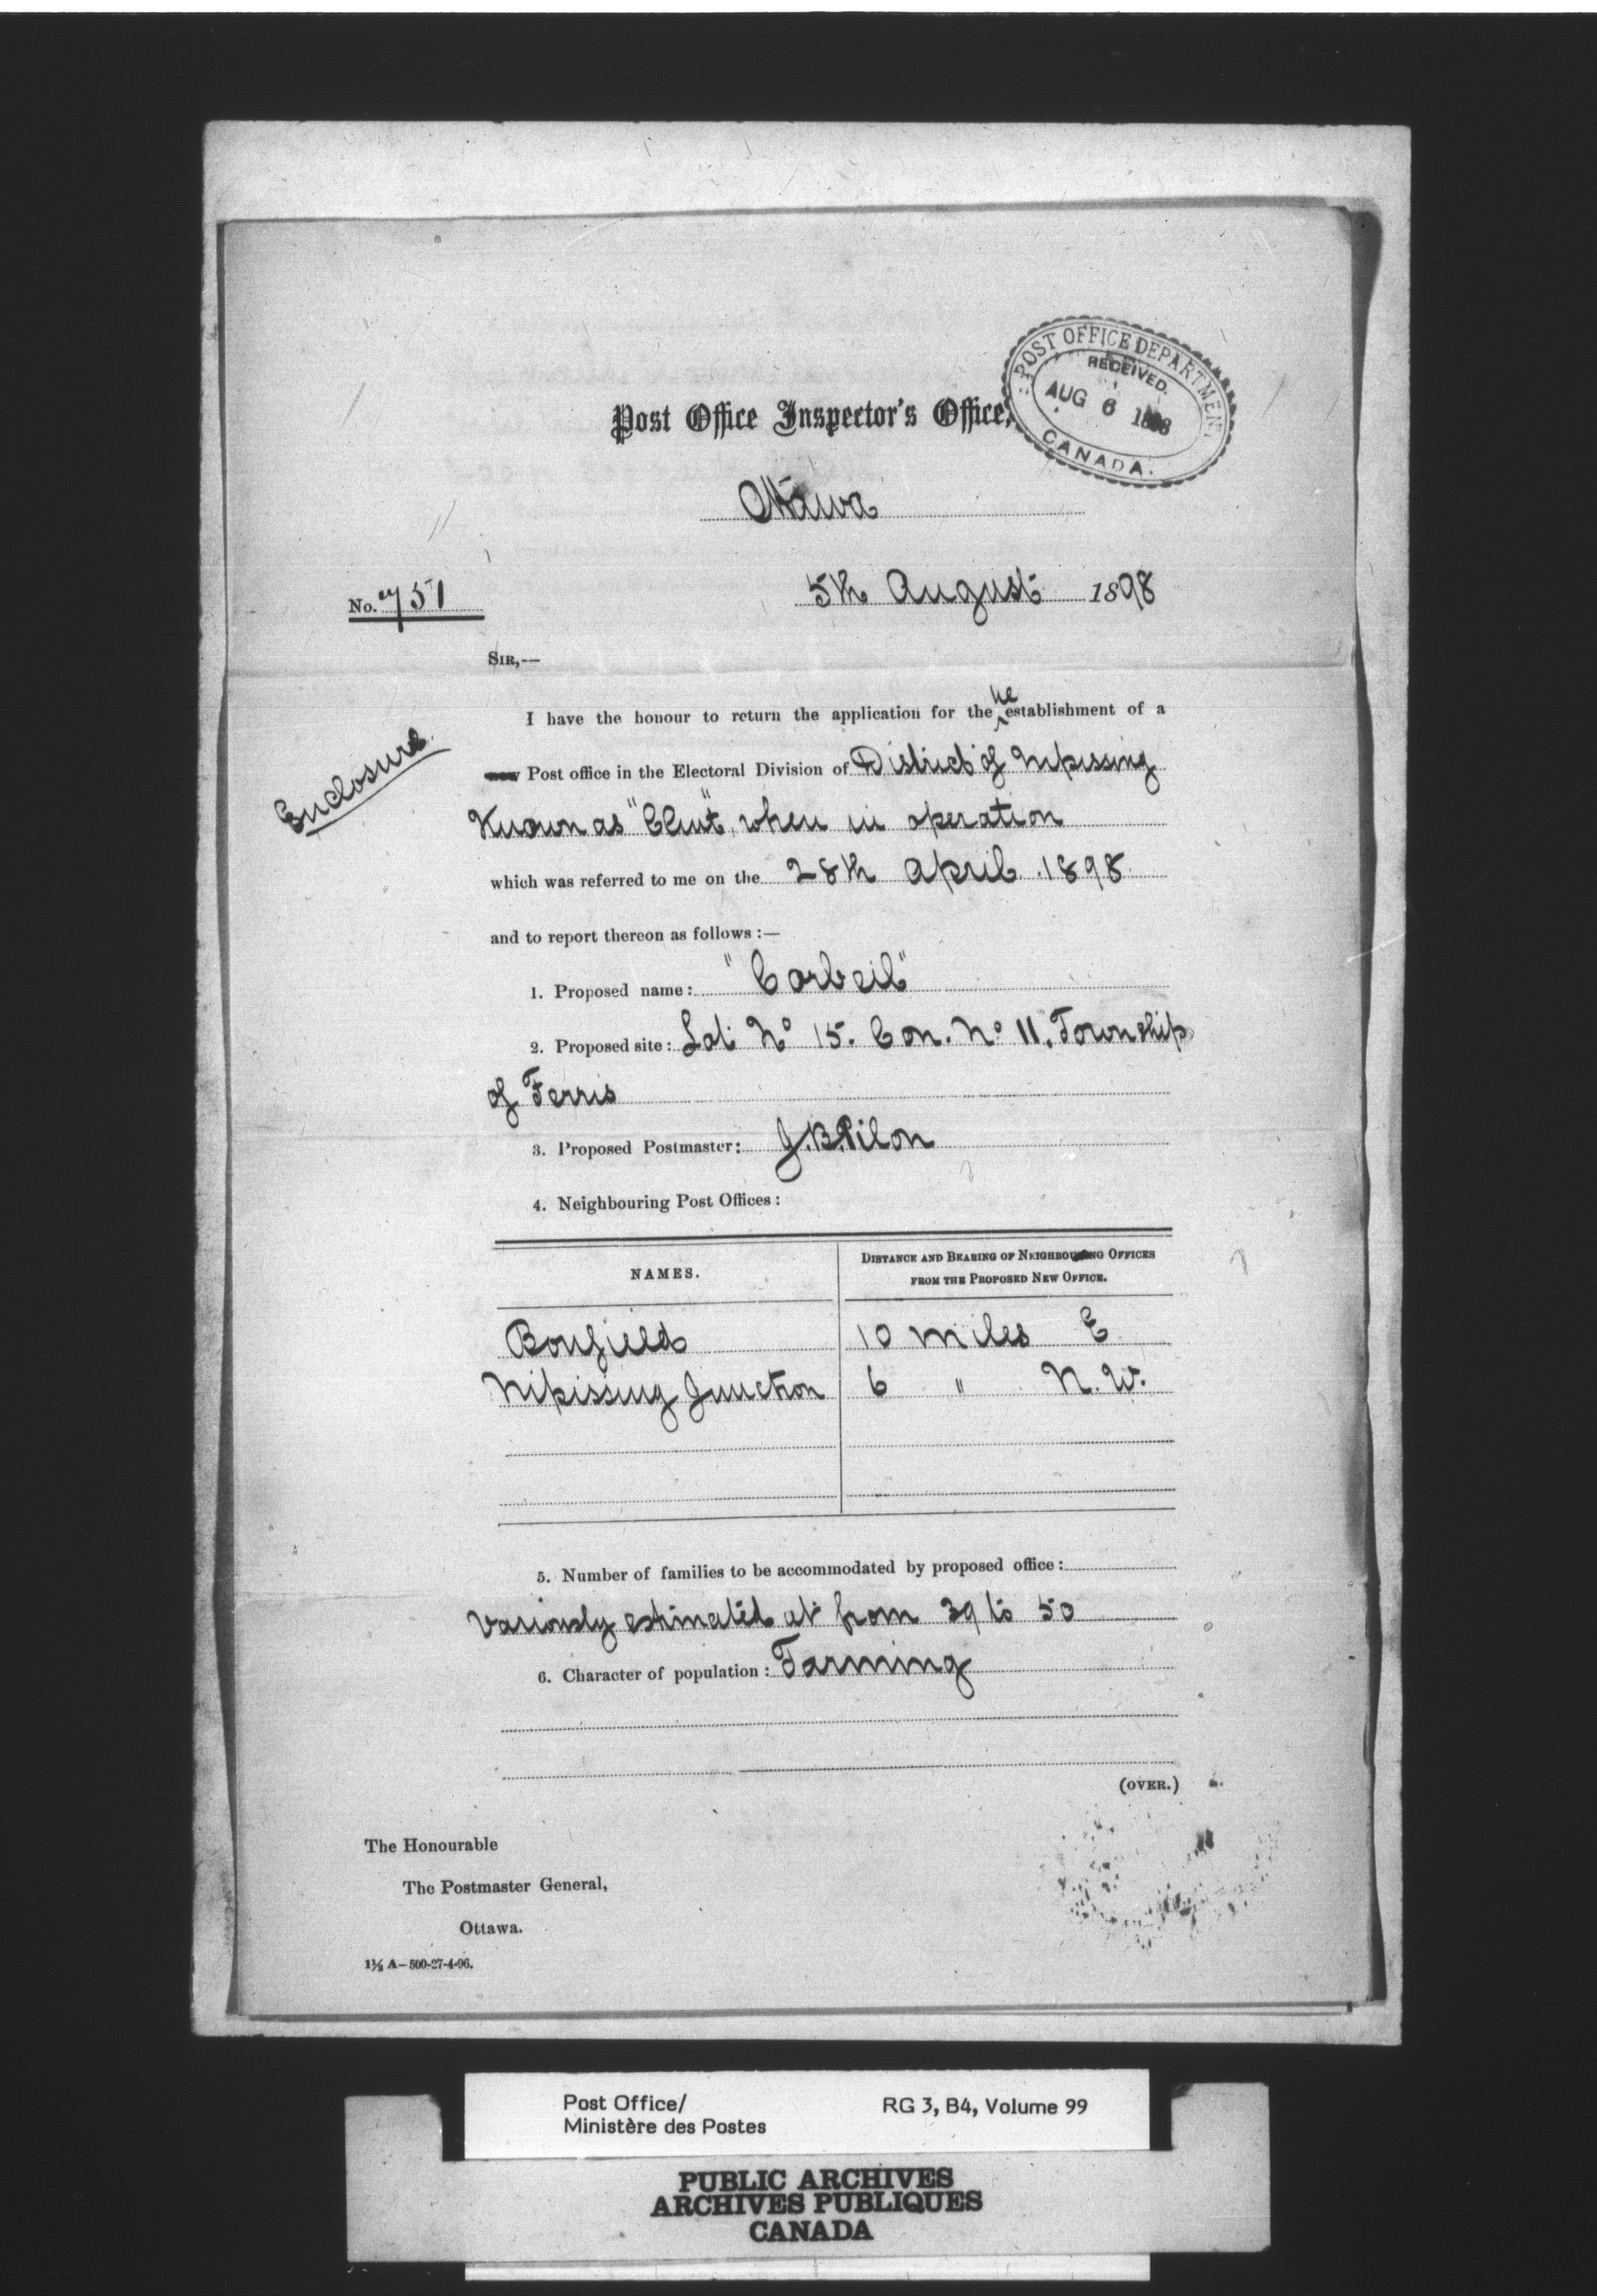 POST OFFICE DEPARTMENT,
RECEIVED.
AUG 6 1898
CANADA.
Post Office Inspector's Office,
Ottawa
No. 751
5th August 1898
SIR,—
I have the honour to return the application for the re establishment of a
Enclosure
new Post office in the Electoral Division of District of Nipissing
Known as "Clint", when in operation
which was referred to me on the 28th April 1898.
and to report thereon as follows :—
1. Proposed name: "Corbeil"
2. Proposed site: Lot No 15. Con. No 11, Township
of Ferris
3. Proposed Postmaster: J.B. Pilon
4. Neighbouring Post Offices:
NAMES.
DISTANCE AND BEARING OF NEIGHBOURING OFFICES
FROM THE PROPOSED NEW OFFICE.
Bonfield 10 miles E
Nipissing Junction 6 " N.W.
5. Number of families to be accommodated by proposed office:
Variously estimated at from 39 to 50
6. Character of population: Farming
(OVER.)
The Honourable
The Postmaster General,
Ottawa.
1½ A—500-27-4-96.
Post Office/
Ministère des Postes
RG 3, B4, Volume 99
PUBLIC ARCHIVES
ARCHIVES PUBLIQUES
CANADA